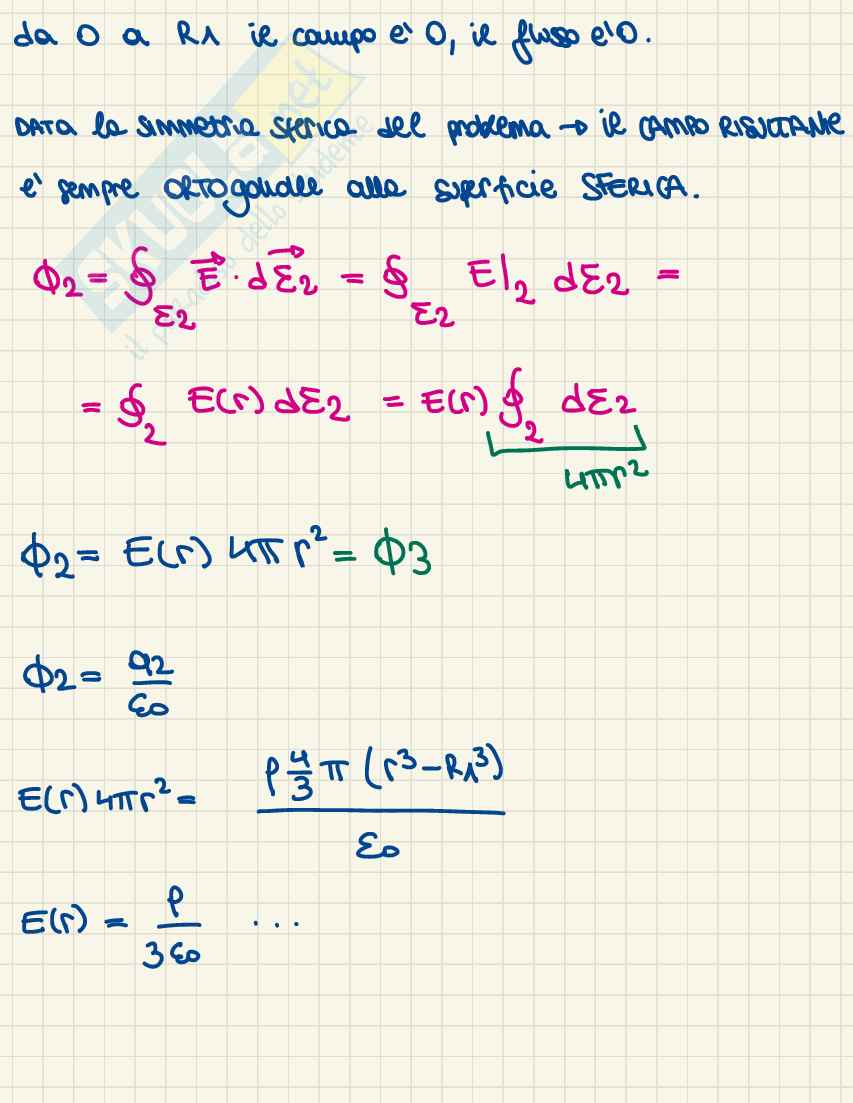 da 0 a R1 il campo e' 0, il flusso e' 0.
DATA la simmetria sferica del problema → il CAMPO RISULTANTE
e' sempre ORTogonale alla superficie SFERICA.
Φ2 = ∮Σ2 E⃗ · dΣ⃗2 = ∮Σ2 E|2 dΣ2 =
= ∮2 E(r) dΣ2 = E(r) ∮2 dΣ2
4πr²
Φ2 = E(r) 4π r² = Φ3
Φ2 = q2/ε0
E(r) 4πr² = ρ 4/3 π (r³ - R1³)/ε0
E(r) = ρ/3ε0 ...
SKUOLA.net
il paradiso dello studente